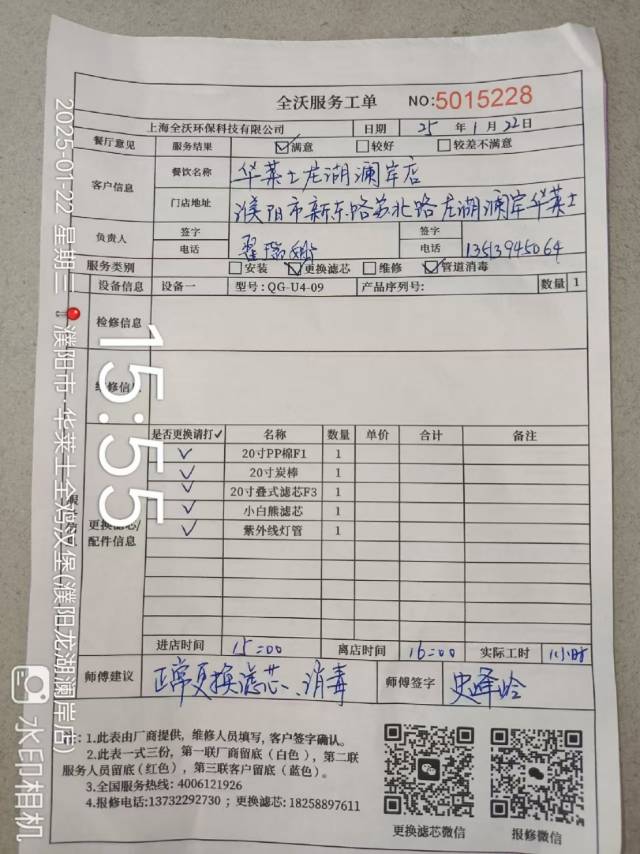 全沃服务工单 NO:5015228
上海全沃环保科技有限公司 日期 25 年 1 月 22 日
餐厅意见 服务结果 ☑满意 □较好 □较差不满意
客户信息 餐饮名称 华莱士龙湖澜岸店
门店地址 濮阳市新东路苏北路龙湖澜岸华莱士
负责人 签字 签字
电话 电话 13513945064
服务类别 □安装 ☑更换滤芯 □维修 ☑管道消毒
设备信息 设备一 型号:QG-U4-09 产品序列号: 数量 1
检修信息
维修信息
是否更换请打✓ 名称 数量 单价 合计 备注
✓ 20寸PP棉F1 1
✓ 20寸炭棒 1
✓ 20寸叠式滤芯F3 1
✓ 小白熊滤芯 1
✓ 紫外线灯管 1
更换滤芯/
配件信息
进店时间 15:00 离店时间 16:00 实际工时 1小时
师傅建议 正常更换滤芯、消毒 师傅签字 史峰岭
注:1.此表由厂商提供,维修人员填写,客户签字确认。
2.此表一式三份,第一联厂商留底(白色),第二联
服务人员留底(红色),第三联客户留底(蓝色)。
3.全国服务热线:4006121926
4.报修电话:13732292730;更换滤芯:18258897611
更换滤芯微信 报修微信
15:55
2025-01-22 星期三
濮阳市·华莱士全鸡汉堡(濮阳龙湖澜岸店)
水印相机